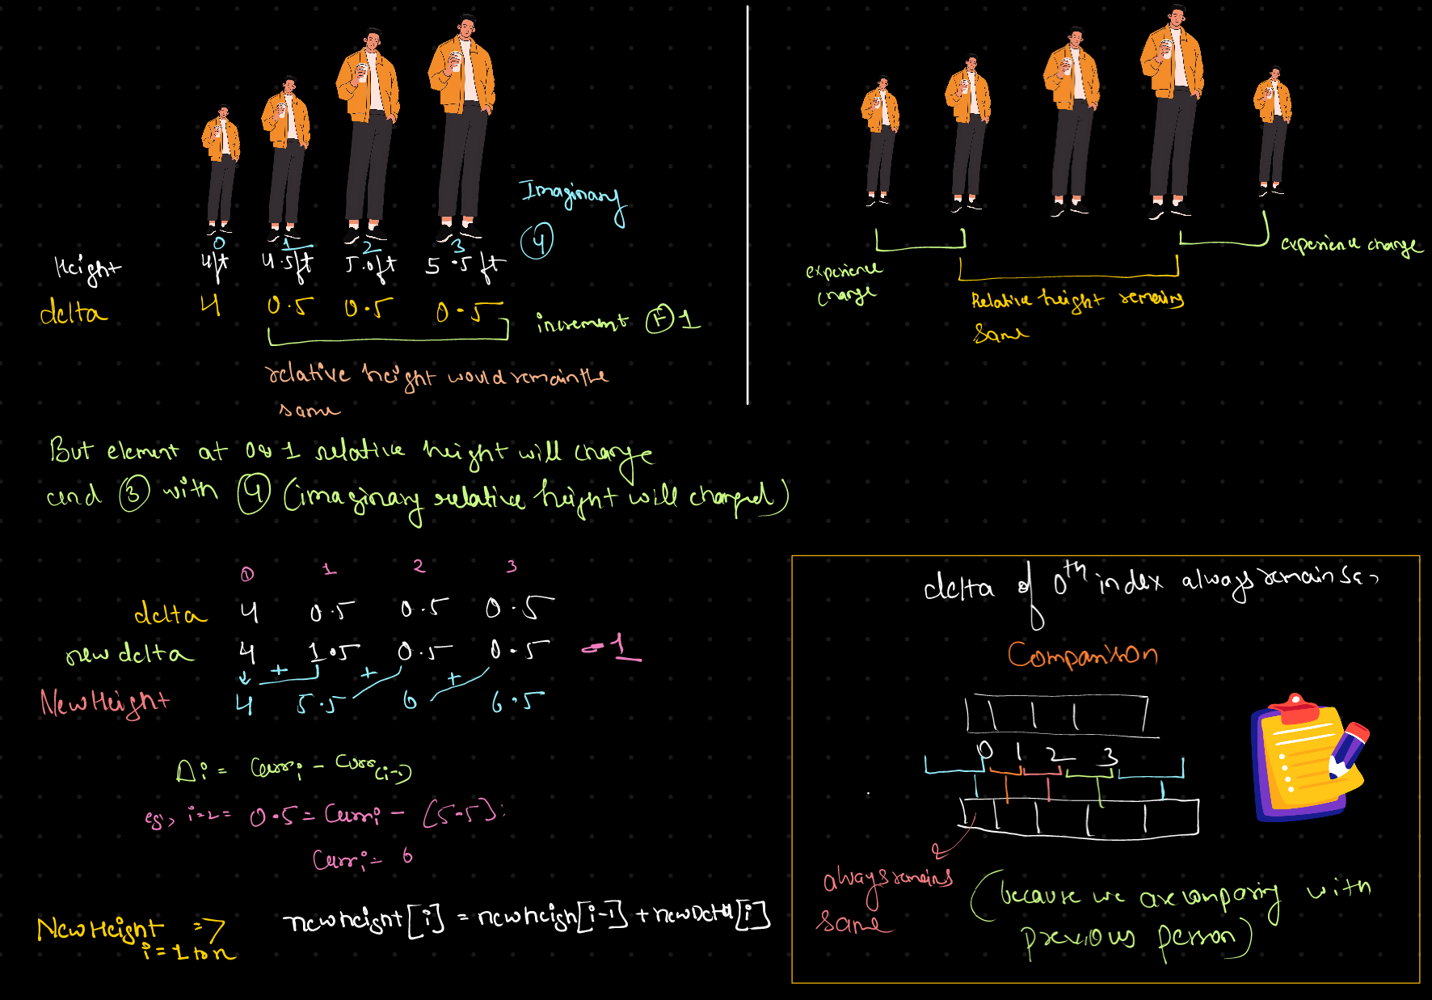 Imaginary
4
0 1 2 3
Height 4ft 4.5ft 5.0ft 5.5ft
delta 4 0.5 0.5 0.5
increment + 1
relative height would remain the
same
experience
change
experience change
Relative height remains
same
But element at 0 & 1 relative height will change
and 3 with 4 (imaginary relative height will changed)
0 1 2 3
delta 4 0.5 0.5 0.5
new delta 4 1.5 0.5 0.5 -1
+ + +
New Height 4 5.5 6 6.5
Δi = Curri - Curr(i-1)
eg, i=2 = 0.5 = Curri - (5.5)
Curri = 6
New Height =>
i = 1 to n
newheight[i] = newheigh[i-1] + newDelta[i]
delta of 0th index always remains
Comparison
0 1 2 3
always remains
same
(because we are comparing with
previous person)